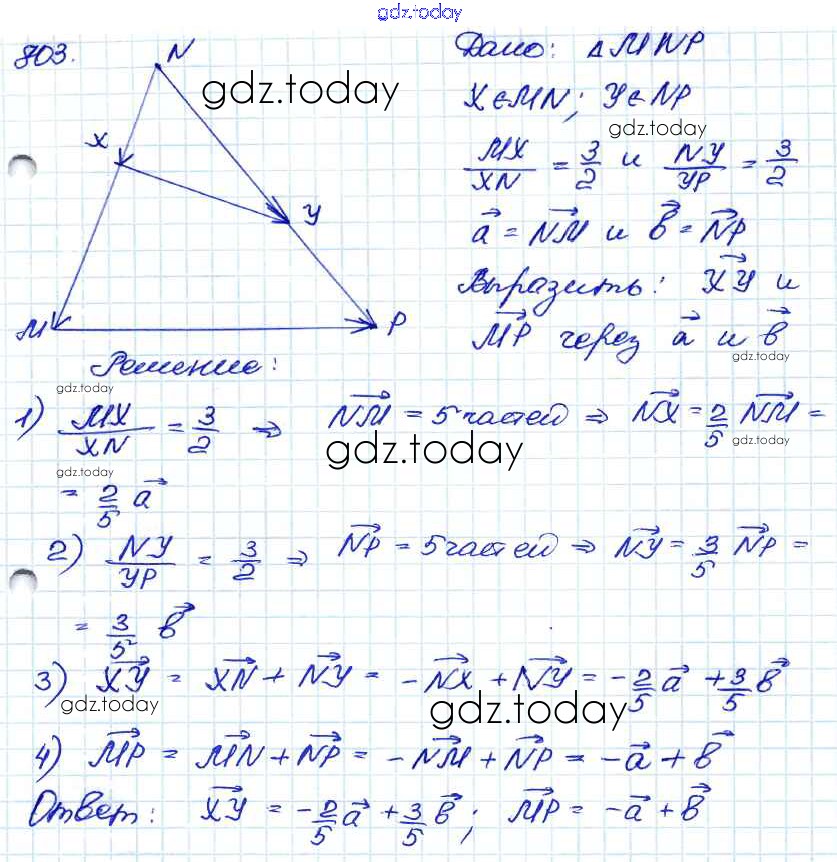 gdz.today
803.
N
Дано: △MNP
gdz.today
X∈MN; Y∈NP
gdz.today
X
MX/XN = 3/2 и NY/YP = 3/2
Y
a⃗ = NM⃗ и b⃗ = NP⃗
Выразить: XY⃗ и
M
P
MP⃗ через a⃗ и b⃗
gdz.today
Решение:
gdz.today
1) MX/XN = 3/2 ⇒ NM⃗ = 5 частей ⇒ NX⃗ = 2/5 NM⃗ =
gdz.today
gdz.today
gdz.today
= 2/5 a⃗
2) NY/YP = 3/2 ⇒ NP⃗ = 5 частей ⇒ NY⃗ = 3/5 NP⃗ =
= 3/5 b⃗
3) XY⃗ = XN⃗ + NY⃗ = -NX⃗ + NY⃗ = -2/5 a⃗ + 3/5 b⃗
gdz.today
gdz.today
4) MP⃗ = MN⃗ + NP⃗ = -NM⃗ + NP⃗ = -a⃗ + b⃗
Ответ: XY⃗ = -2/5 a⃗ + 3/5 b⃗; MP⃗ = -a⃗ + b⃗